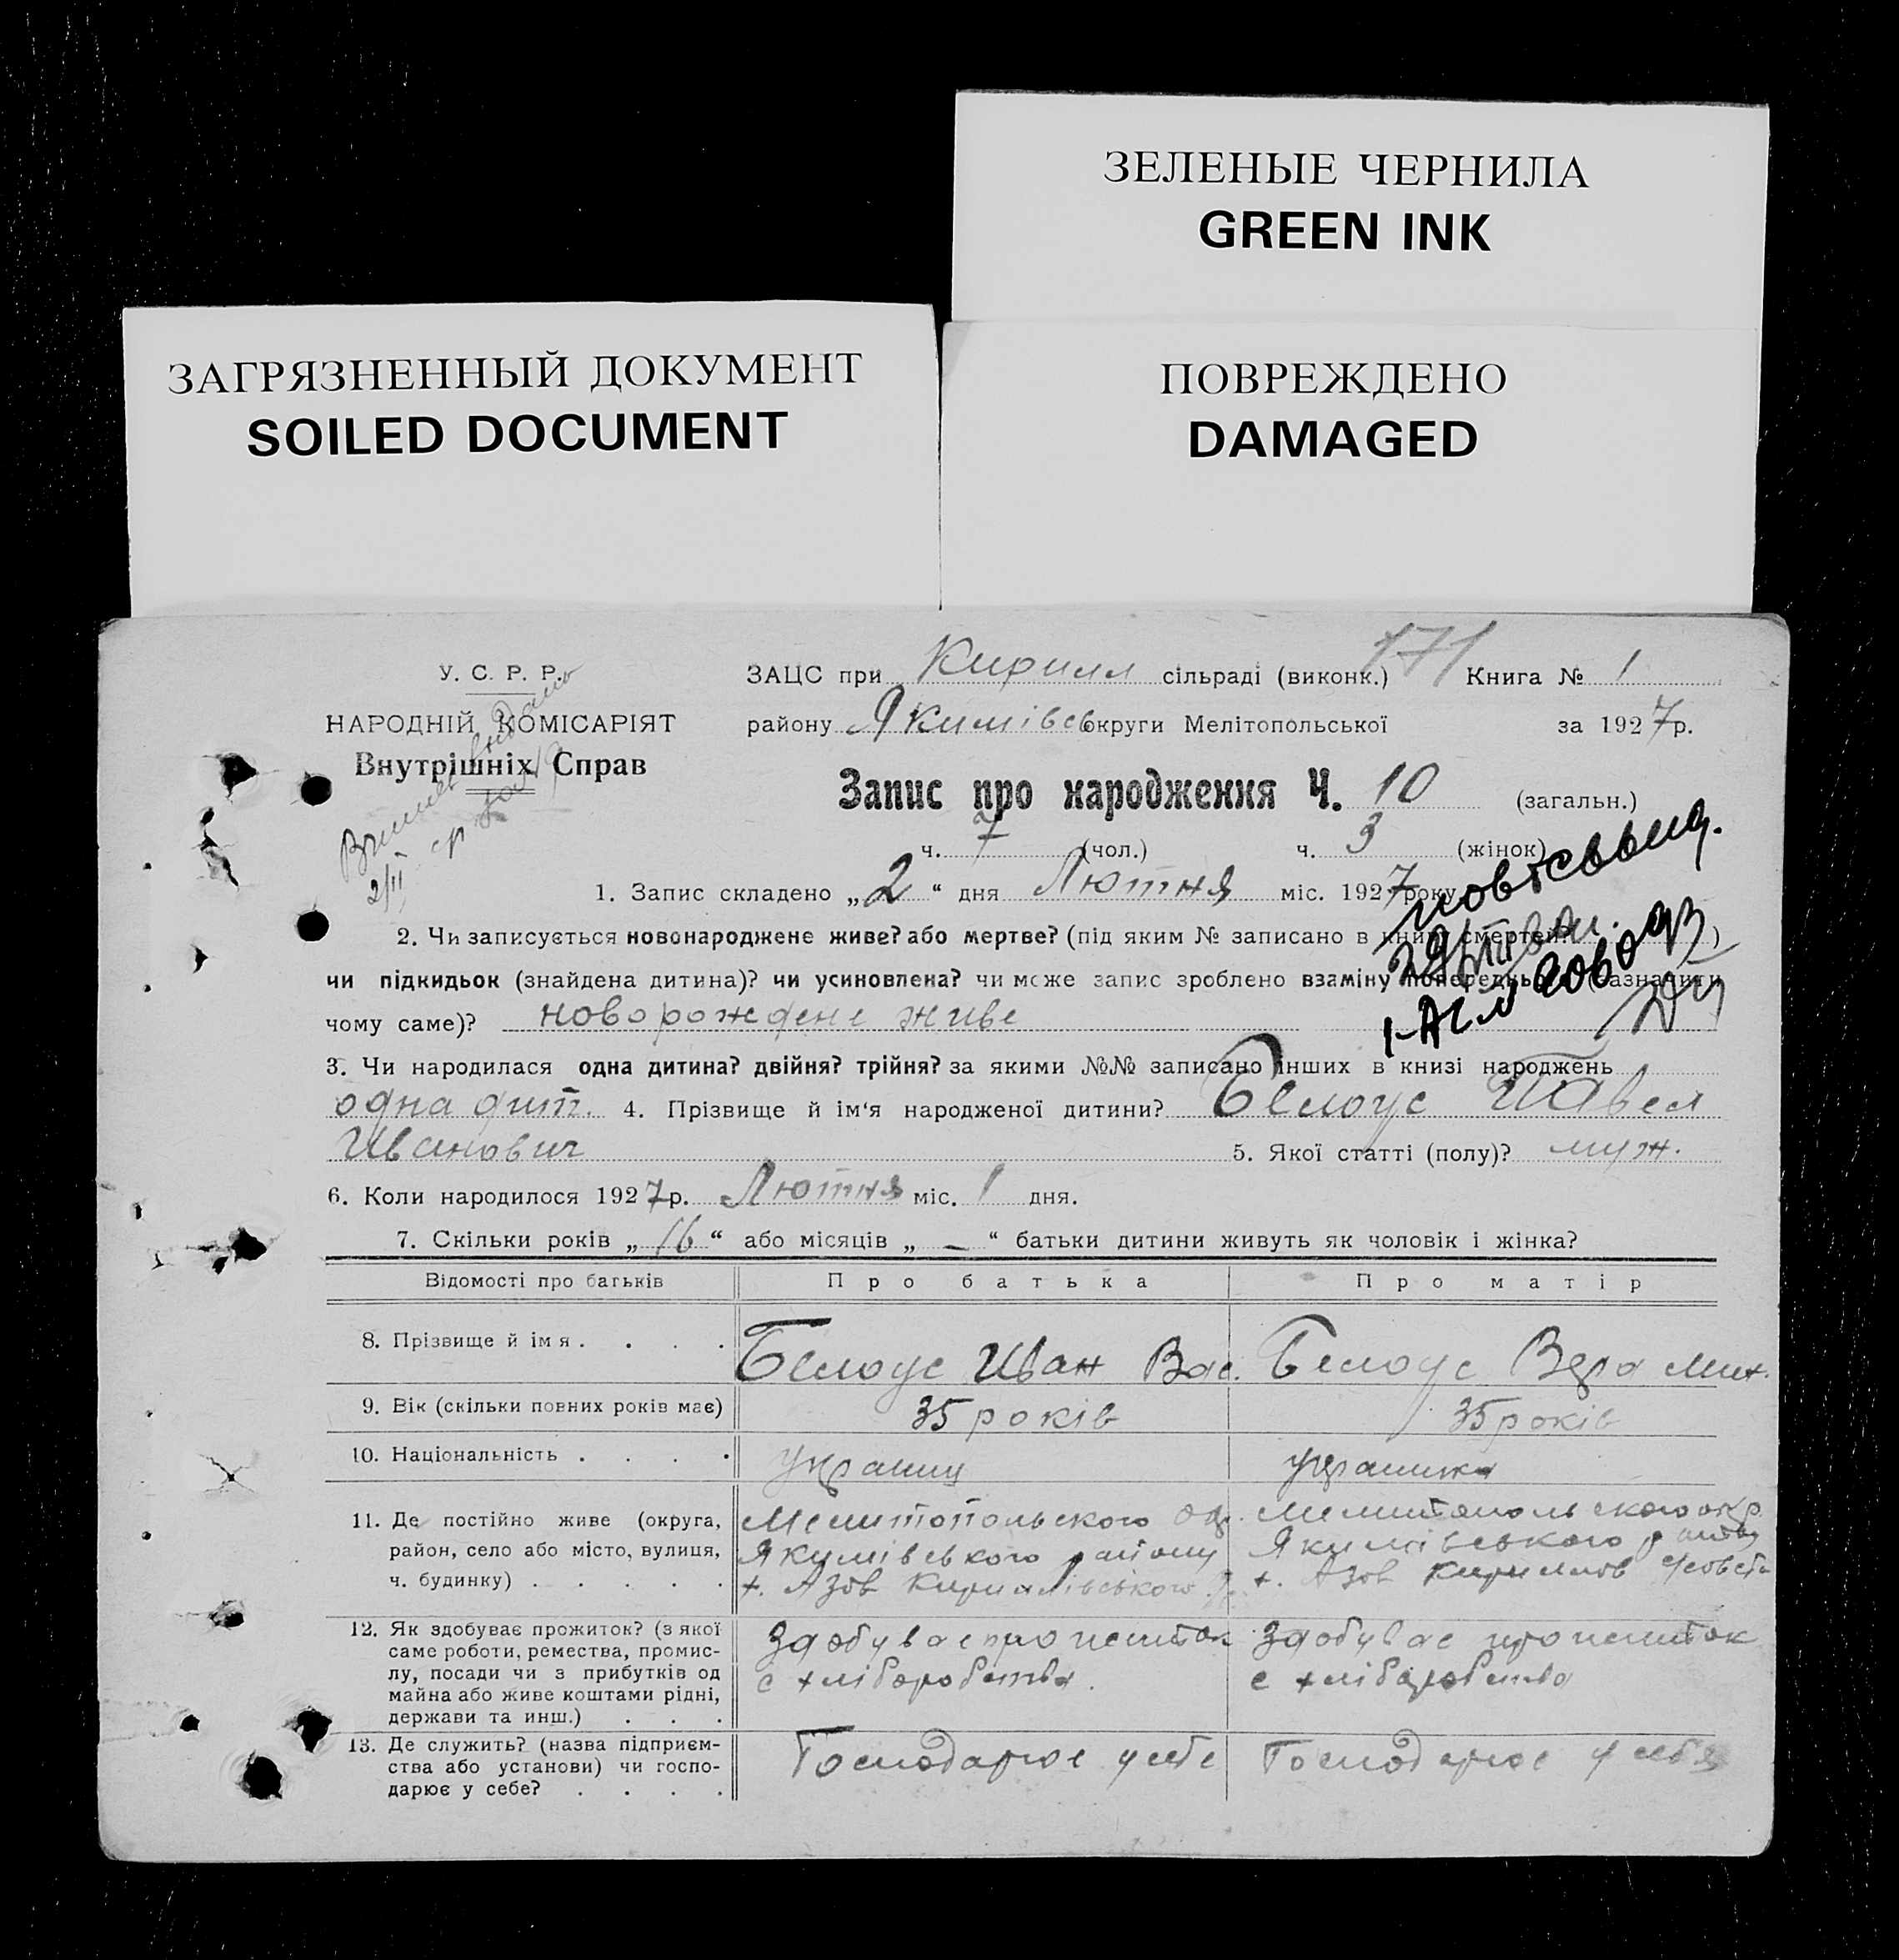 ЗЕЛЕНЫЕ ЧЕРНИЛА
GREEN INK
ЗАГРЯЗНЕННЫЙ ДОКУМЕНТ
SOILED DOCUMENT
ПОВРЕЖДЕНО
DAMAGED
171
У. С. Р. Р.
НАРОДНІЙ КОМІСАРІЯТ
Внутрішніх Справ
ЗАЦС при Кирилл сільраді (виконк.) Книга № 1
району Якимівсь округи Мелітопольської за 1927р.
Запис про народження Ч. 10 (загальн.)
ч. 7 (чол.) ч. 3 (жінок)
2/II
1. Запис складено „2“ дня Лютня міс. 1927 року
2. Чи записується новонароджене живе? або мертве? (під яким № записано в книзі смертей?)
чи підкидьок (знайдена дитина)? чи усиновлена? чи може запис зроблено взаміну попереднього (зазначити
чому саме)? новорождене живе
3. Чи народилася одна дитина? двійня? трійня? за якими №№ записано інших в книзі народжень
одна дит. 4. Прізвище й ім'я народженої дитини? Белоус Павел
Иванович 5. Якої статті (полу)? муж.
6. Коли народилося 1927р. Лютня міс. 1 дня.
7. Скільки років „16“ або місяців „—“ батьки дитини живуть як чоловік і жінка?
Відомості про батьків Про батька Про матір
8. Прізвище й імя . . . . Белоус Иван Вас. Белоус Вера Мих.
9. Вік (скільки повних років має) 35 років 35 років
10. Національність . . . . украинц украинка
11. Де постійно живе (округа, Мелитопольского окр. Мелитопольского окр.
район, село або місто, вулиця, Якимівського району Якимівського району
ч. будинку) . . . . . х. Азов Кириллівського х. Азов Кириллов с/совета
12. Як здобуває прожиток? (з якої Здобувае прожиток Здобувае прожиток
саме роботи, ремества, промис-
лу, посади чи з прибутків од с хліборобства. с хліборобства
майна або живе коштами рідні,
держави та инш.) . . .
13. Де служить? (назва підприєм- Господарює у себе Господарює у себя
ства або установи) чи госпо-
дарює у себе? . . . .